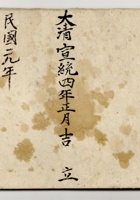 大清宣統四年正月吉立
民國元年